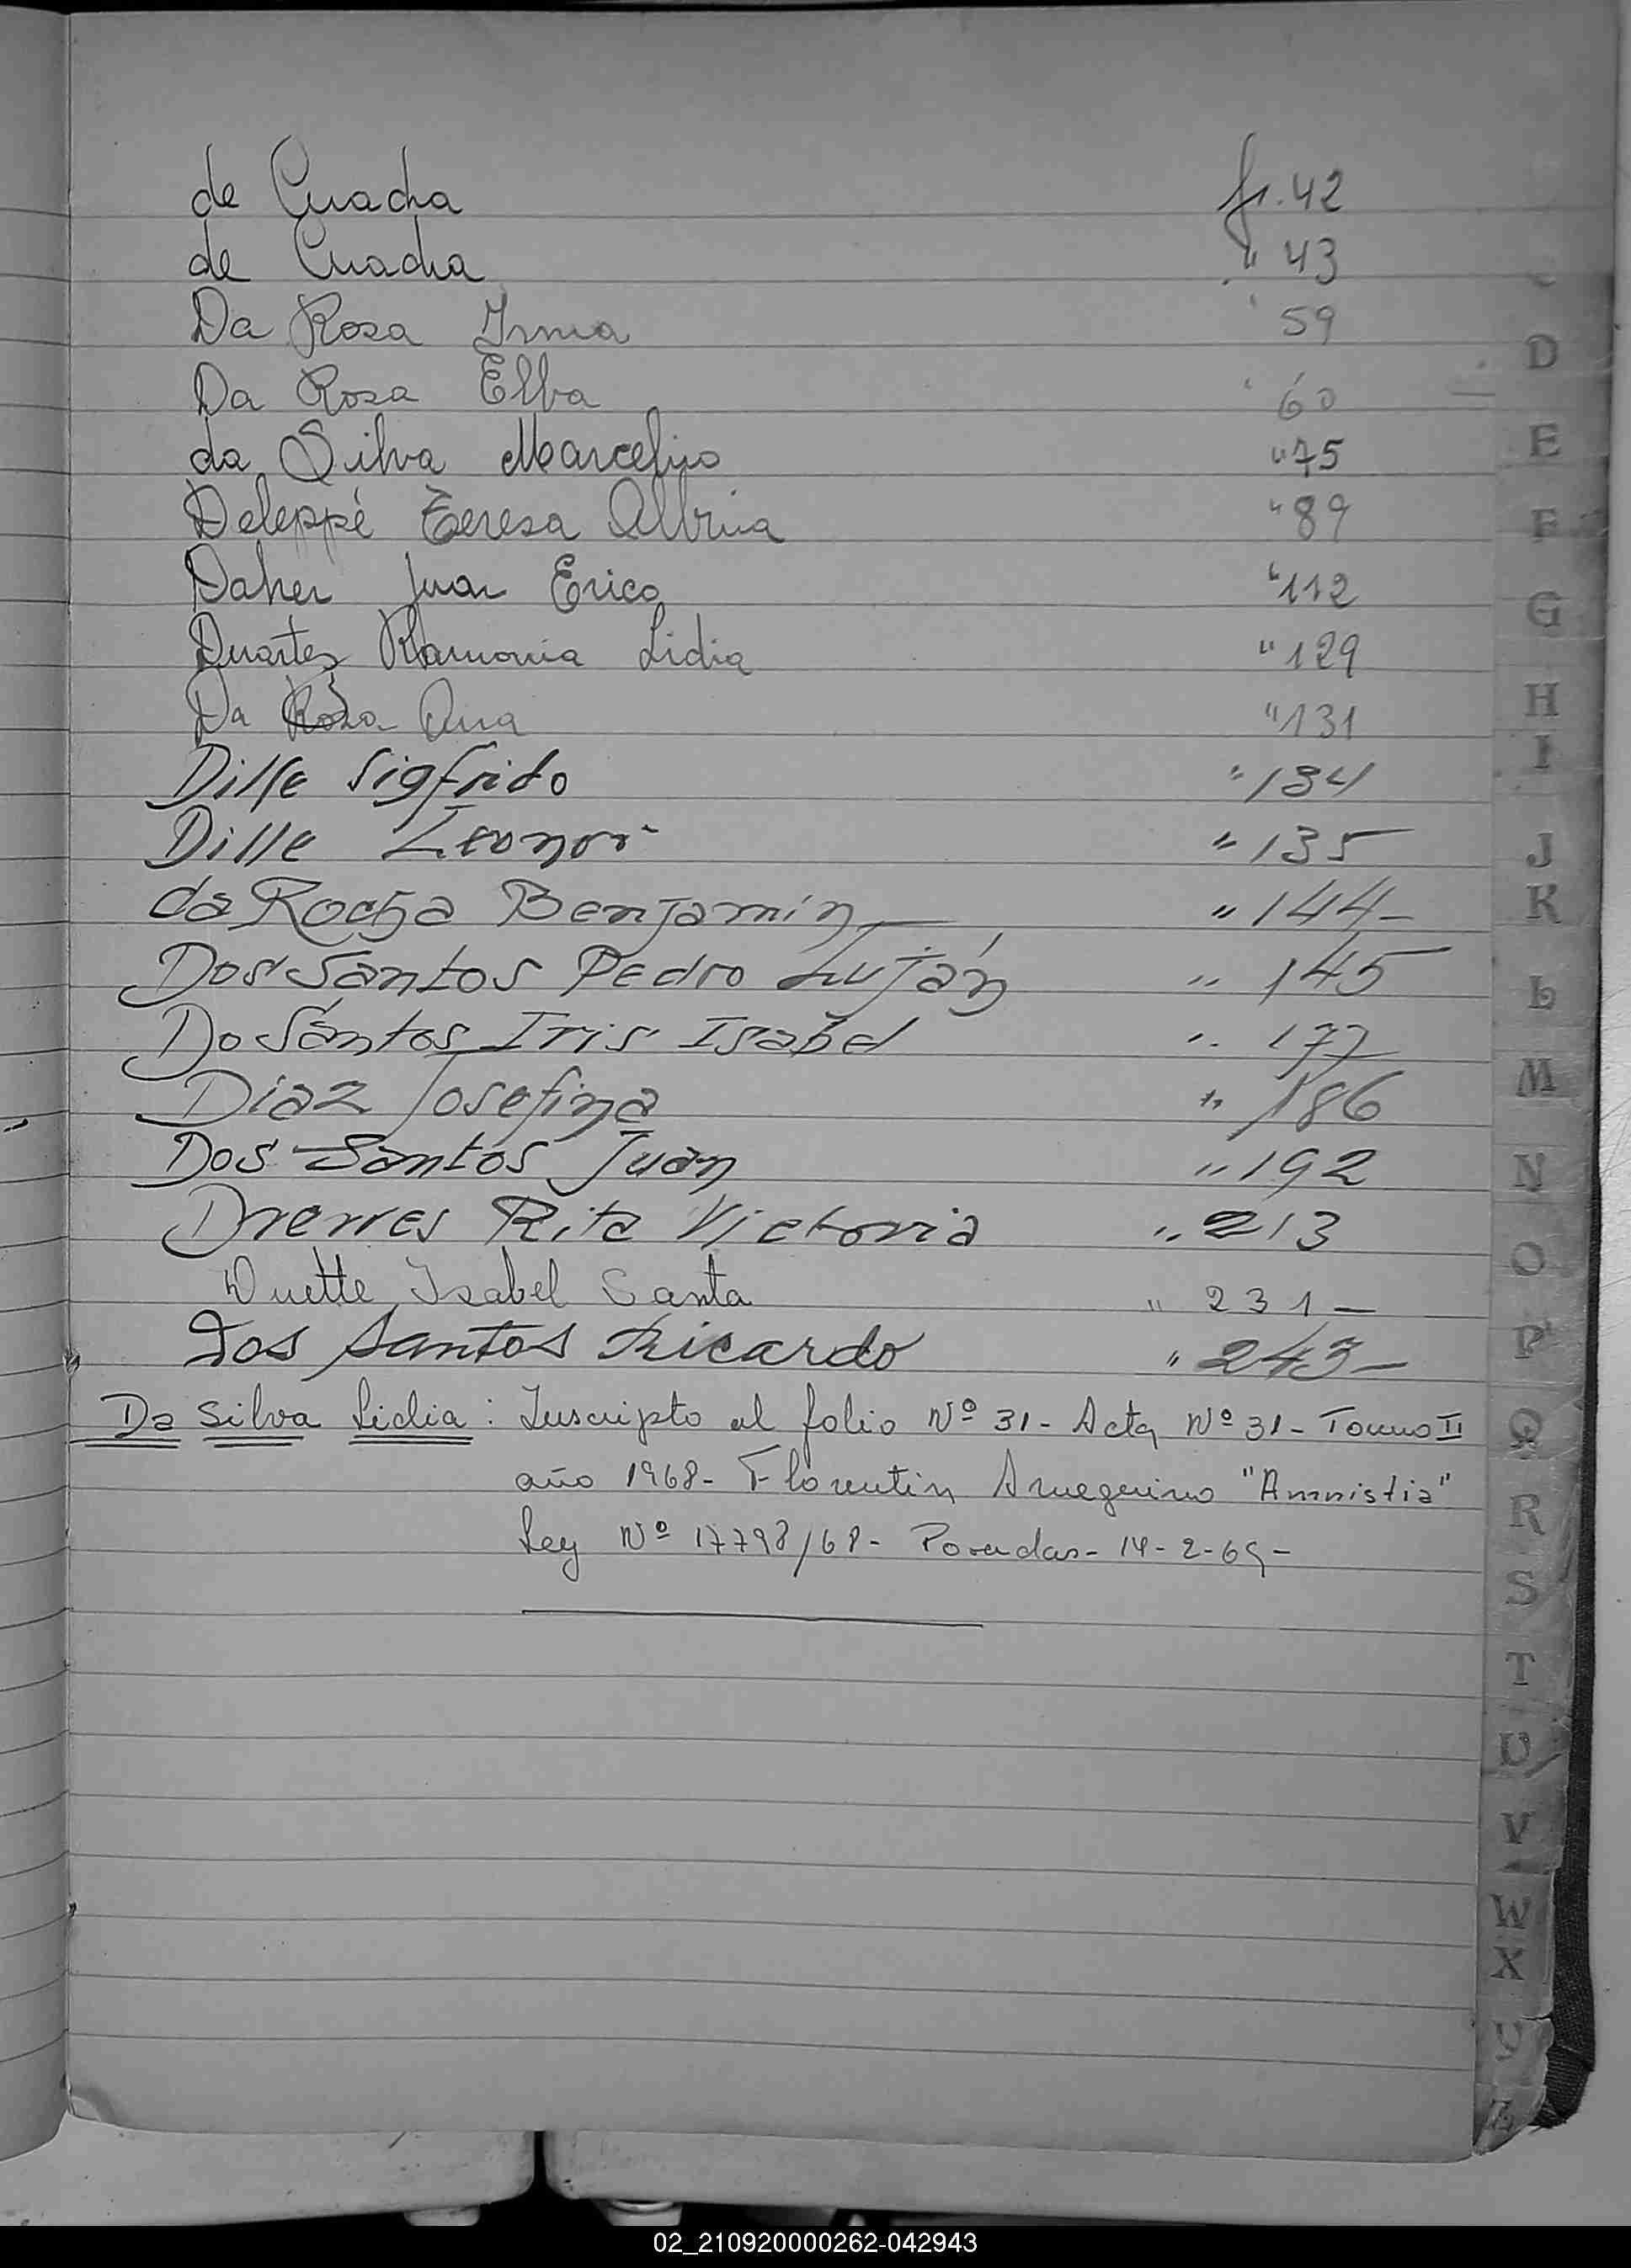 de Cuadra fs. 42
de Cuadra " 43
Da Rosa Irma ' 59
Da Rosa Elba ' 60
da Silva Marcelino "75
Deleppé Teresa Albina "89
Daher Juan Erico "112
Duartes Ramona Lidia "129
Da Rosa Ana "131
Dille Sigfrido "134
Dille Leonor "135
da Rocha Benjamín "144-
Dos Santos Pedro Luján " 145
Do Santos Iris Isabel " 177
Diaz Josefina " 186
Dos Santos Juan " 192
Drewes Rita Victoria " 213
Duette Isabel Santa " 231-
Dos Santos Ricardo " 243-
Da Silva Lidia: Inscripto al folio Nº 31- Acta Nº 31- Tomo II
año 1968- Florentin Ameguino "Amnistia"
Ley Nº 17798/68- Posadas- 14-2-69-
D
E
F
G
H
I
J
K
L
M
N
O
P
Q
R
S
T
U
V
W
X
Y
Z
02_210920000262-042943